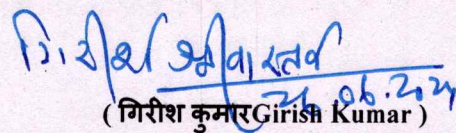 गिरीश श्रीवास्तव
26.06.2024
( गिरीश कुमारGirish Kumar )